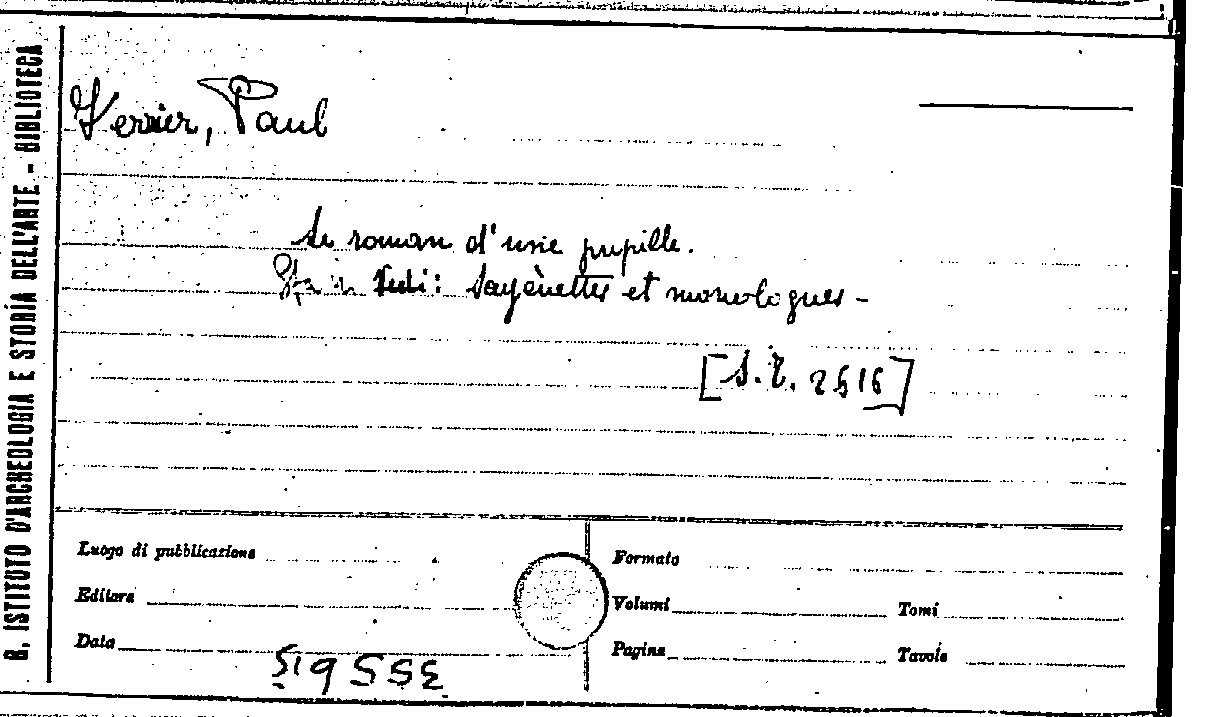 R. ISTITUTO D'ARCHEOLOGIA E STORIA DELL'ARTE - BIBLIOTECA
Verrier, Paul
Le roman d'une pupille.
Vedi: Saynèttes et monologues -
[S.T. 2516]
Luogo di pubblicazione
Formato
Editore
Volumi
Tomi
Data
Pagine
Tavole